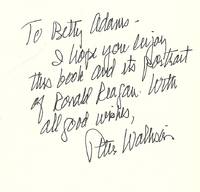 To Betty Adams –
I hope you enjoy
this book and its portrait
of Ronald Reagan. With
all good wishes,
Peter Wallison